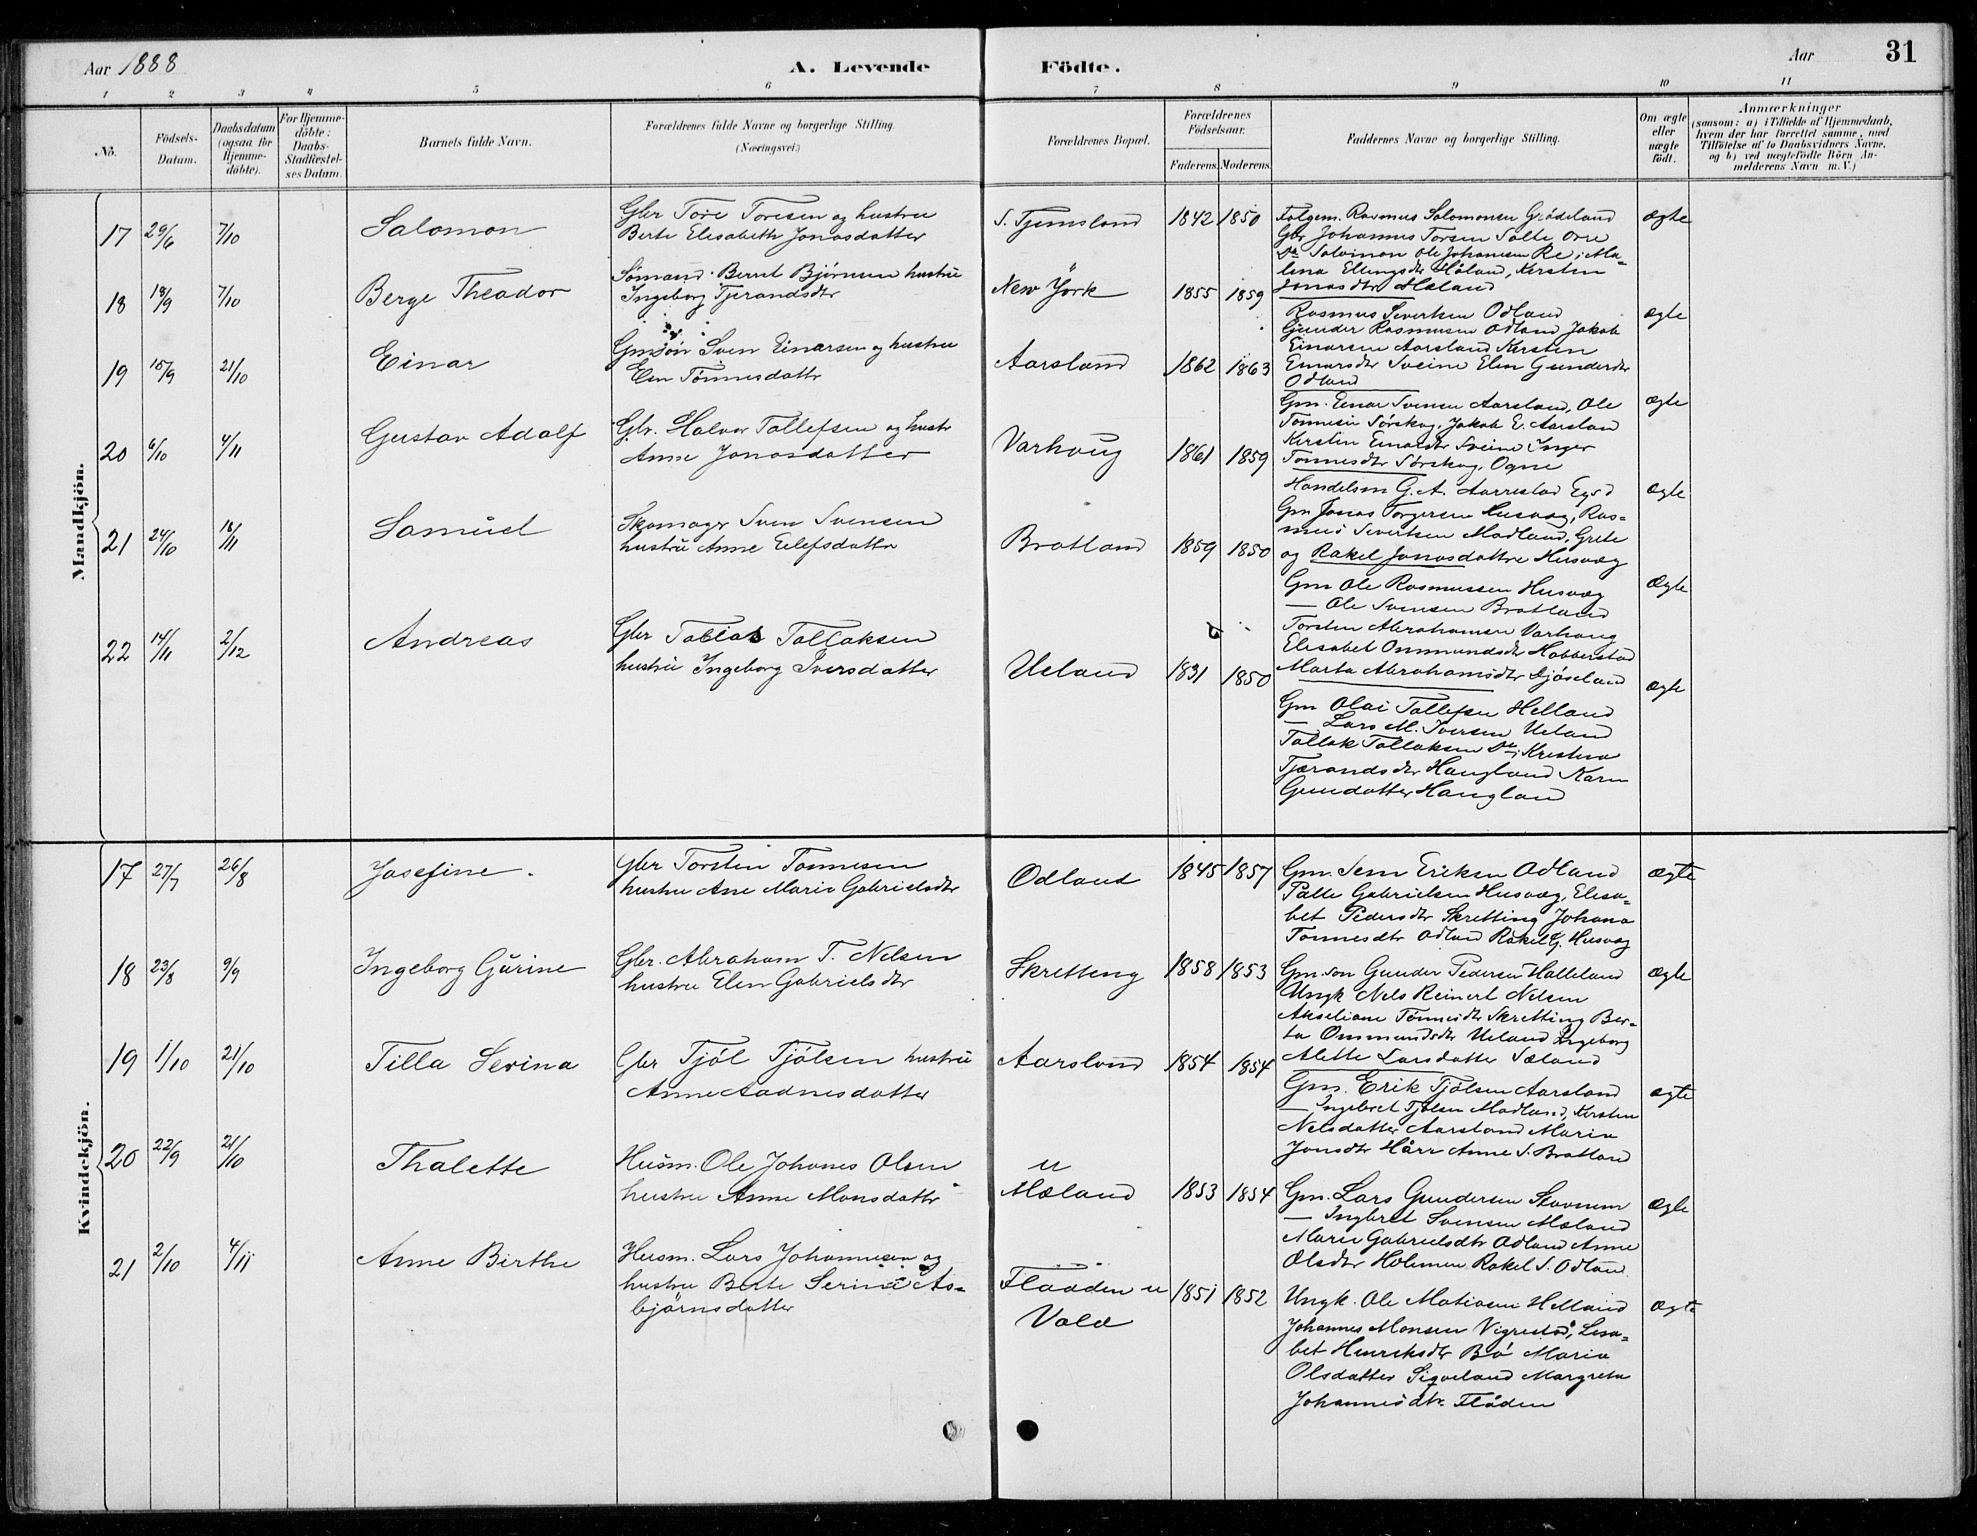 Aar 1888
A. Levende
Födte.
Aar
31
1 2 3 4 5 6 7 8 9 10 11
No.
Födsels-Datum.
Daabsdatum (ogsaa for Hjemme-döbte).
For Hjemme-döbte: Daabs-Stadfæstel-ses Datum.
Barnets fulde Navn.
Forældrenes fulde Navne og borgerlige Stilling.
(Næringsvei.)
Forældrenes Bopæl.
Forældrenes Födselsaar.
Faderens. Moderens.
Faddernes Navne og borgerlige Stilling.
Om ægte eller uægte födt.
Anmærkninger
(saasom: a) i Tilfælde af Hjemmedaab,
hvem der har forrettet samme, med
Tilföielse af to Daabsvidners Navne,
og b) ved uægtefödte Börn An-
melderens Navn m. V.)
Mandkjön.
17 29/6 7/10 Salomon
Gbr Tore Toresen og hustru
Berte Elisabeth Jonasdatter
S. Tjemsland 1842 1850
Folgem. Rasmus Salomonsen Grödeland
Gbr Johannes Torsen Salte Orre
Do Salomon Ole Johannsen Re, Ma-
lena Ellingsdtr Håland, Kirsten
Jonasdtr Hæland
ægte
18 18/9 7/10 Berge Theodor
Sømand Bernt Bjørnsen hustru
Ingeborg Tjerandsdtr
New York 1855 1859
Rasmus Sivertsen Odland
Gunder Rasmusen Odland Jakob
Einarsen Aarsland Kirsten
Einarsdtr Sveine Elen Gundersdtr
Odland
ægte
19 15/9 21/10 Einar
Gmsøn Sven Einarsen og hustru
Elen Tønnesdattr
Aarsland 1862 1863
Gm. Einar Svensen Aarsland, Ole
Tønnesen Sørskog, Jakob E. Aarsland
Kirsten Einarsdtr Sveine Inger
Tønnesdtr Sørskog, Ogne
ægte
20 6/10 4/11 Gustav Adolf
Gbr. Halvor Tollefsen og hustr
Anne Jonasdatter
Varhoug 1861 1859
Handelsm G. A. Aarrestad Egsd
Gm Jonas Torgersen Husvæg, Ras-
mus Sivertsen Madland, Grete
og Rakel Jonasdattre Husvæg
ægte
21 24/10 18/11 Samuel
Skomager Sven Svensen
hustru Anne Eilefsdattr
Bratland 1859 1850
Gm Ole Rasmussen Husvæg
— Ole Svensen Bratland
Torsten Abrahamsen Varhoug
Elisabet Ommundsdtr Hobberstad
Marta Abrahamsdtr Gjøseland
ægte
22 14/11 2/12 Andreas
Gbr Tobias Tollaksen
hustru Ingeborg Iversdatter
Ueland 1831 1850
Gm Olai Tollefsen Helland
— Lars M. Iversen Ueland
Tollak Tollaksen Do, Kristine
Tjerandsdtr Haugland Karn
Gundatter Haugland
ægte
Kvindekjön.
17 27/7 26/8 Josefine.
Gbr Torsten Tønnesen
hustru Ane Marie Gabrielsdtr
Odland 1845 1857
Gm. Sem Eriksen Odland
Palle Gabrielsen Husvæg, Elisa-
bet Pedersdtr Skretting Johana
Tønnesdtr Odland Rakel G. Husvæg
ægte
18 23/8 9/9 Ingeborg Gurine
Gbr. Abraham T. Nelsen
hustru Elen Gabrielsdtr
Skretting 1858 1853
Gm.søn Gunder Pedersen Halleland
Ungk Nels Reinert Nelsen
Akseliane Tønnesdtr Skretting Ber-
ta Ommundsdtr Ueland Ingeborg
Alette Larsdatter Sæland
ægte
19 1/10 21/10 Tilla Serina
Gbr Tjøl Tjølsen hustru
Anne Aadnesdatter
Aarsland 1854 1854
Gm. Erik Tjølsen Aarsland
— Ingebret Tjølsen Madland, Kirsten
Nelsdatter Aarsland Maria
Jonsdtr Hårr Anne S. Bratland
ægte
20 22/9 21/10 Thalette
Husm. Ole Johanes Olsen
hustru Anne Monsdattr
u
Mæland 1853 1854
Gm. Lars Gundersen Stavnem
— Ingbret Svensen Mæland
Marie Gabrielsdtr Odland Anne
Olsdtr Holmen Rakel S. Odland
ægte
21 2/10 4/11 Anne Birthe
Husm. Lars Johannesen og
hustru Berte Serine As-
bjørnsdatter
Flaaden u
Vold 1851 1852
Ungk. Ole Matiasen Helland
Johannes Monsen Vigrestad, Lisa-
bet Henriksdtr Bø Maria
Olsdatter Sigveland Margreta
Johannesdtr. Flåden
ægte